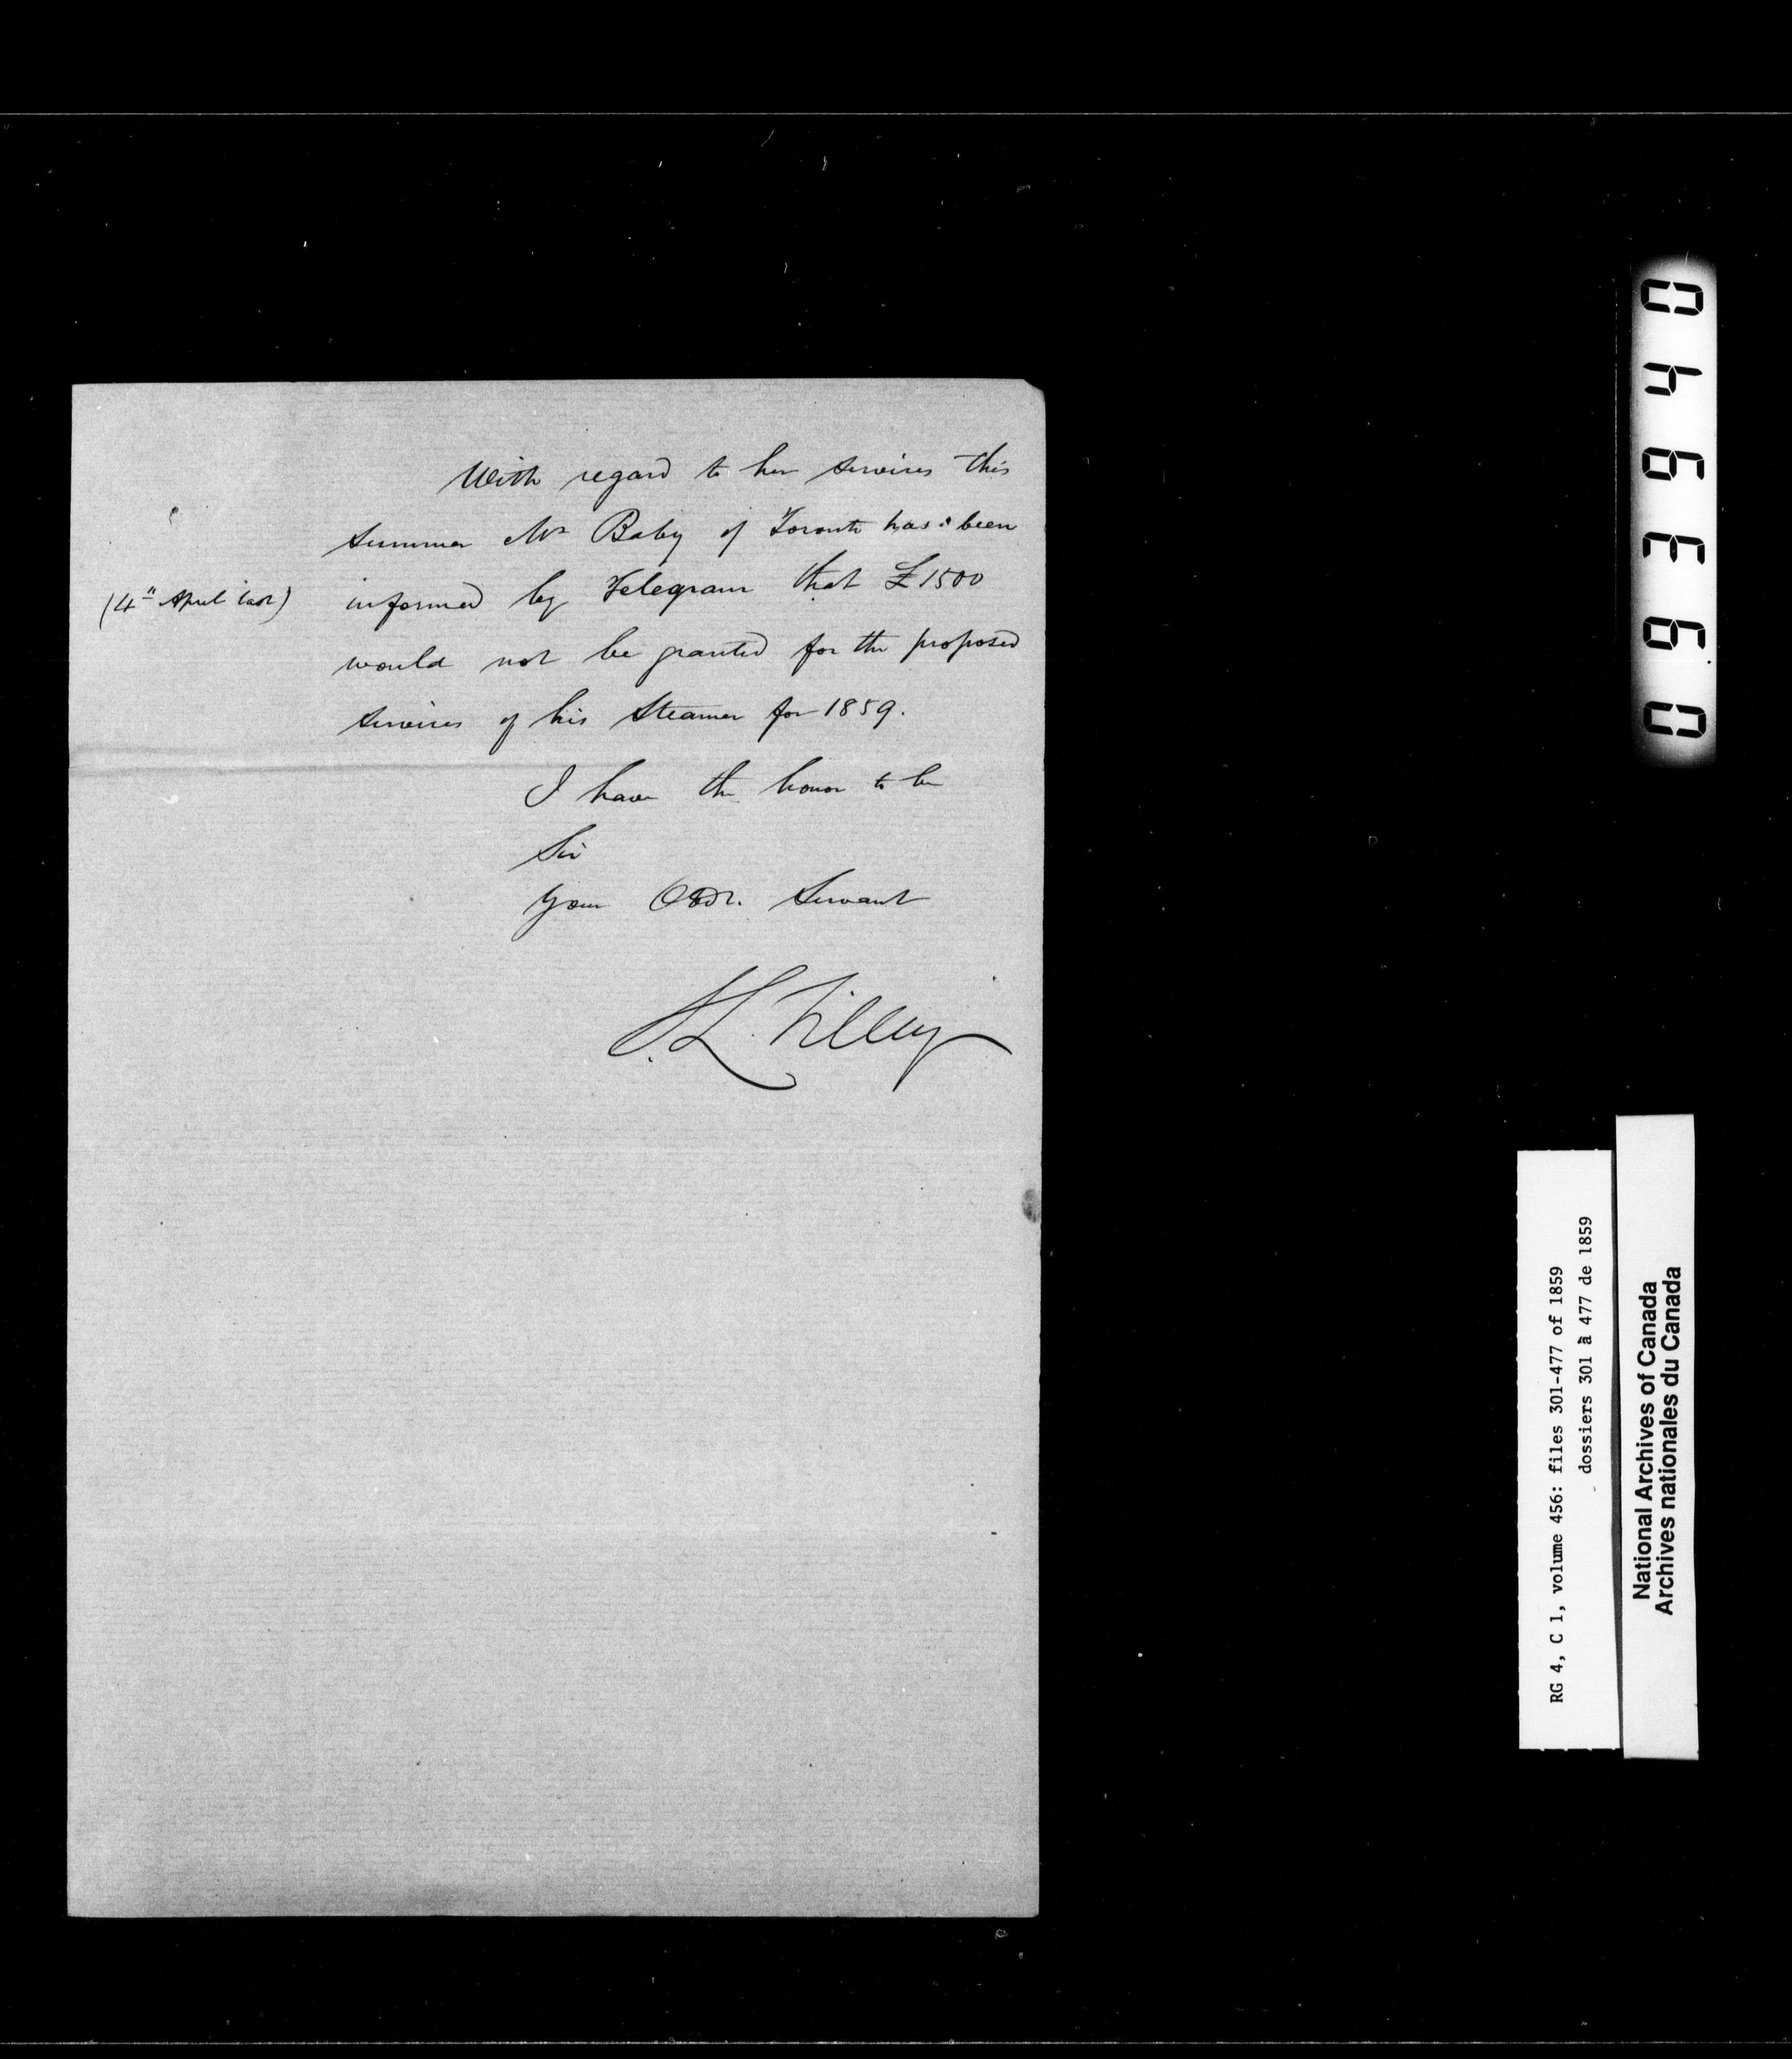 With regard to her services this
summer Mr Baby of Toronto has been
(4th April last) informed by Telegram that £1500
would not be granted for the proposed
services of his Steamer for 1859.
I have the honor to be
Sir
Your Obdt. Servant
S. L. Tilley
046360
RG 4, C 1, volume 456: files 301-477 of 1859
dossiers 301 à 477 de 1859
National Archives of Canada
Archives nationales du Canada